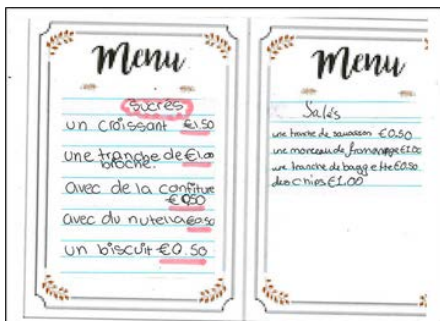 Menu
sucrés
un croissant €1.50
une tranche de €1.00
broche.
avec de la confiture
€0.50
avec du nutella €0.50
un biscuit €0.50
Menu
Salés
une tranche de saucisson €0.50
une morceau de frommage €1.00
une tranche de baggette €0.50
des chips €1.00